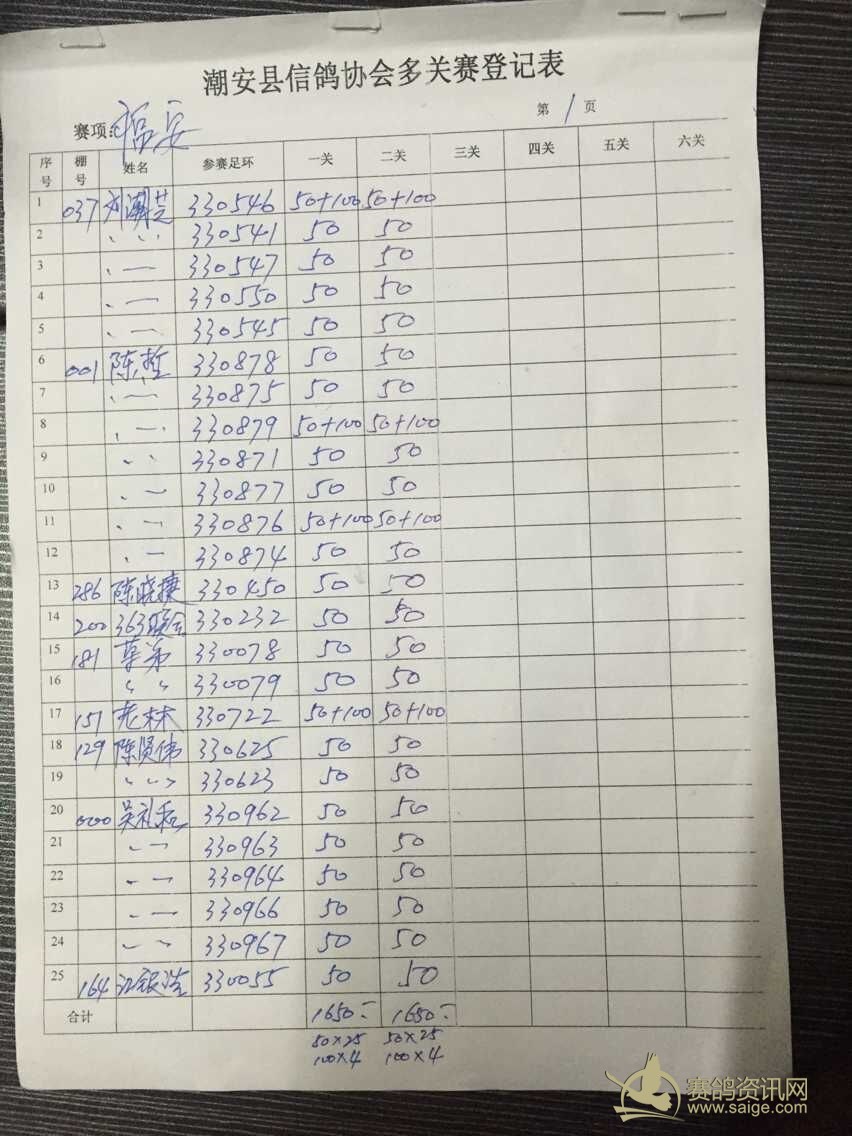 潮安县信鸽协会多关赛登记表
赛项:福安 第1页
序号 棚号 姓名 参赛足环 一关 二关 三关 四关 五关 六关
1 037 刘潮芝 330546 50+100 50+100
2 〃 330541 50 50
3 〃 330547 50 50
4 〃 330550 50 50
5 〃 330545 50 50
6 001 陈哲 330878 50 50
7 〃 330875 50 50
8 〃 330879 50+100 50+100
9 〃 330871 50 50
10 〃 330877 50 50
11 〃 330876 50+100 50+100
12 〃 330874 50 50
13 286 陈晓捷 330450 50 50
14 200 363 330232 50 50
15 181 330078 50 50
16 〃 330079 50 50
17 151 老林 330722 50+100 50+100
18 129 陈贤伟 330625 50 50
19 〃 330623 50 50
20 000 吴礼和 330962 50 50
21 〃 330963 50 50
22 〃 330964 50 50
23 〃 330966 50 50
24 〃 330967 50 50
25 164 江银浩 330055 50 50
合计 1650 1650
50×25 50×25
100×4 100×4
赛鸽资讯网
www.saige.com